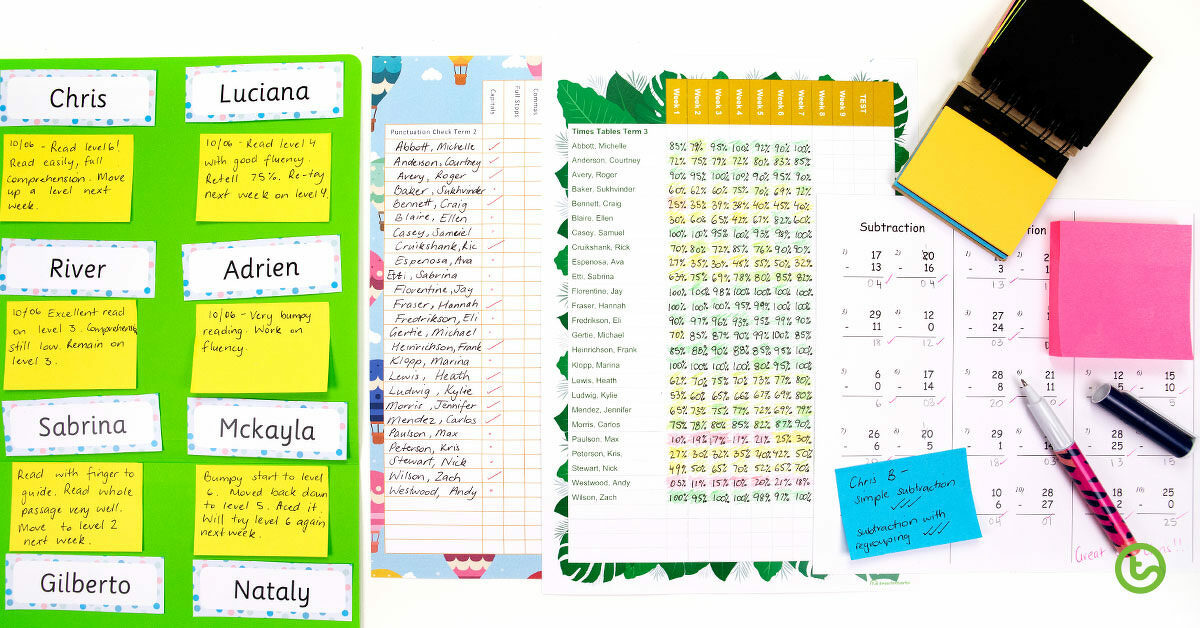 Chris
10/06 - Read level 6!
Read easily, full
comprehension. Move
up a level next
week.
Luciana
10/06 - Read level 4
with good fluency.
Retell 75%. Re-try
next week on level 4.
River
10/06 Excellent read
on level 3. Comprehension
still low. Remain on
level 3.
Adrien
10/06 - Very bumpy
reading. Work on
fluency.
Sabrina
Read with finger to
guide. Read whole
passage very well.
Move to level 2
next week.
Mckayla
Bumpy start to level
6. Moved back down
to level 5. Aced it.
Will try level 6 again
next week.
Gilberto
Nataly
Capitals
Full Stops
Commas
Punctuation Check Term 2
Abbott, Michelle
Anderson, Courtney
Avery, Roger
Baker, Sukhvinder
Bennett, Craig
Blaire, Ellen
Casey, Samuel
Cruikshank, Ric
Espenosa, Ava
Etti, Sabrina
Florentine, Jay
Fraser, Hannah
Fredrikson, Eli
Gertie, Michael
Heinrichson, Frank
Klopp, Marina
Lewis, Heath
Ludwig, Kylie
Morris, Jennifer
Mendez, Carlos
Paulson, Max
Peterson, Kris
Stewart, Nick
Wilson, Zach
Westwood, Andy
Week 1
Week 2
Week 3
Week 4
Week 5
Week 6
Week 7
Week 8
Week 9
TEST
Times Tables Term 3
Abbott, Michelle 85% 79% 95% 100% 92% 90% 100%
Anderson, Courtney 72% 75% 79% 72% 80% 83% 85%
Avery, Roger 90% 95% 100% 100% 90% 95% 90%
Baker, Sukhvinder 60% 62% 60% 75% 70% 69% 72%
Bennett, Craig 25% 35% 39% 38% 40% 45% 40%
Blaire, Ellen 30% 60% 65% 42% 67% 82% 60%
Casey, Samuel 100% 100% 95% 100% 95% 98% 100%
Cruikshank, Rick 70% 80% 72% 85% 76% 90% 90%
Espenosa, Ava 27% 35% 30% 45% 55% 50% 32%
Etti, Sabrina 63% 75% 69% 78% 80% 85% 82%
Florentino, Jay 100% 100% 98% 100% 100% 100% 100%
Fraser, Hannah 100% 100% 100% 95% 99% 100% 100%
Fredrikson, Eli 90% 97% 96% 93% 95% 99% 90%
Gertie, Michael 70% 85% 87% 90% 99% 100% 85%
Heinrichson, Frank 85% 88% 90% 88% 85% 95% 100%
Klopp, Marina 100% 100% 100% 100% 80% 95% 100%
Lewis, Heath 62% 70% 75% 70% 73% 77% 80%
Ludwig, Kylie 53% 60% 65% 66% 67% 69% 80%
Mendez, Jennifer 65% 73% 75% 77% 72% 69% 79%
Morris, Carlos 75% 78% 80% 85% 82% 87% 90%
Paulson, Max 10% 19% 17% 11% 21% 25% 30%
Peterson, Kris 27% 30% 32% 35% 40% 42% 50%
Stewart, Nick 49% 50% 65% 70% 52% 65% 70%
Westwood, Andy 05% 11% 15% 10% 20% 21% 18%
Wilson, Zach 100% 95% 100% 100% 98% 97% 100%
Subtraction
1) 17 2) 20
- 13 - 16
04 04
3) 29 4) 12
- 11 - 0
18 12
5) 6 6) 17
- 0 - 14
6 03
7) 26 8) 20
Chris B -
simple subtraction
subtraction with
regrouping
16
- 3
13
27
- 24
03
28 6) 21
- 8
20
29
18
10 10) 28
6 - 27
04 01
6) 15
- 10
5
28
- 13
15
18 25
- 2 - 0
25
Great